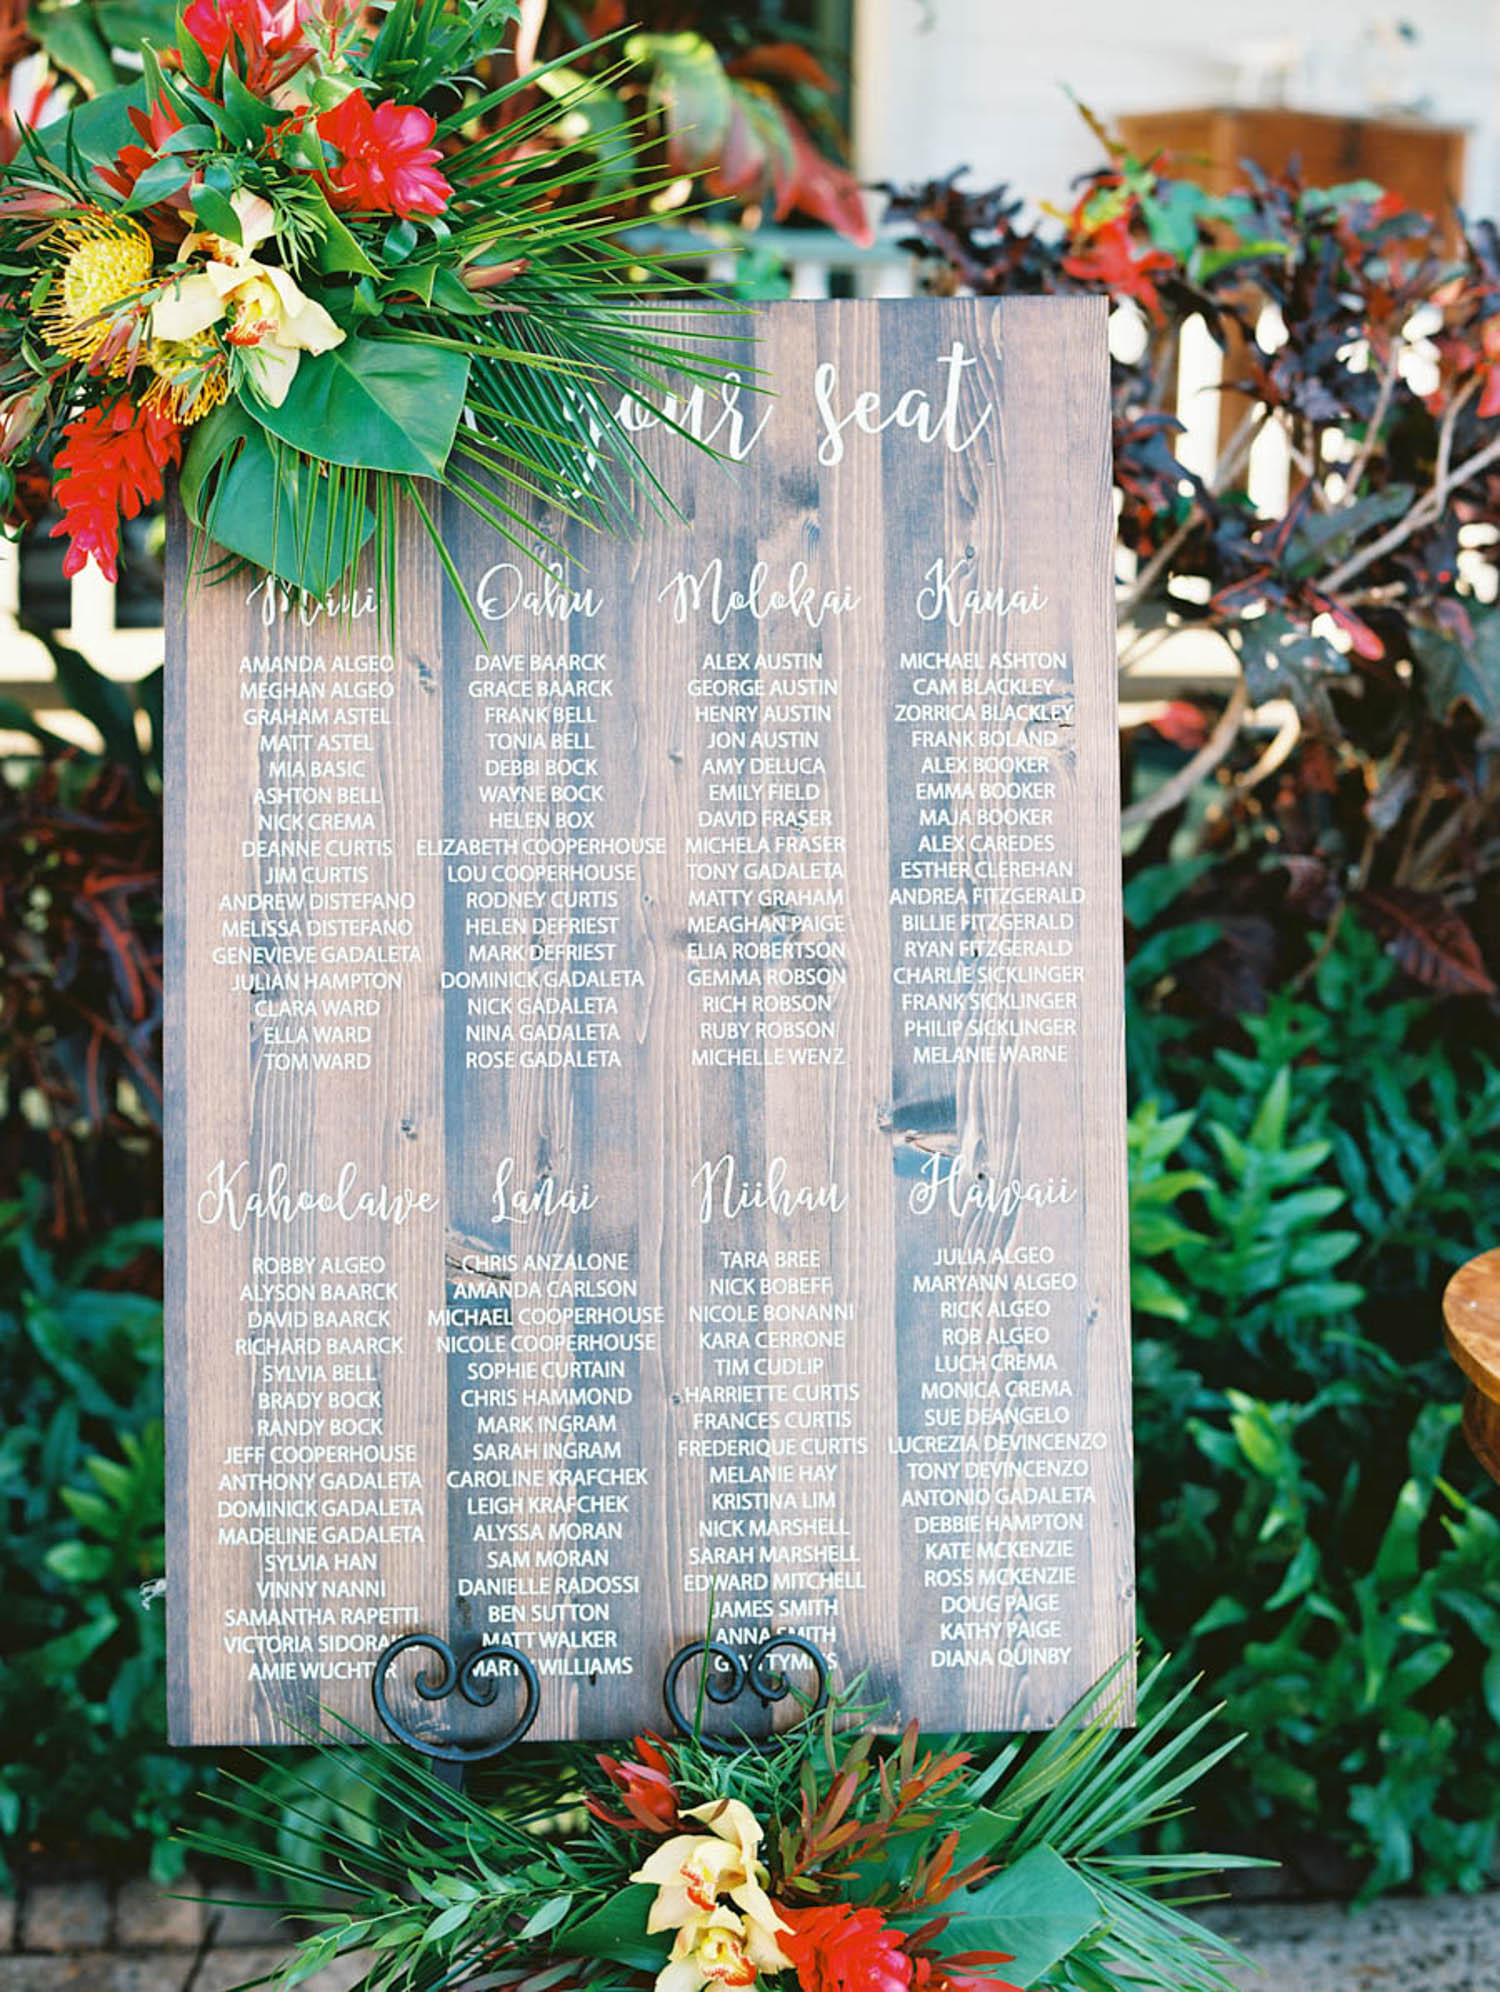 your seat
Maui
AMANDA ALGEO
MEGHAN ALGEO
GRAHAM ASTEL
MATT ASTEL
MIA BASIC
ASHTON BELL
NICK CREMA
DEANNE CURTIS
JIM CURTIS
ANDREW DISTEFANO
MELISSA DISTEFANO
GENEVIEVE GADALETA
JULIAN HAMPTON
CLARA WARD
ELLA WARD
TOM WARD
Oahu
DAVE BAARCK
GRACE BAARCK
FRANK BELL
TONIA BELL
DEBBI BOCK
WAYNE BOCK
HELEN BOX
ELIZABETH COOPERHOUSE
LOU COOPERHOUSE
RODNEY CURTIS
HELEN DEFRIEST
MARK DEFRIEST
DOMINICK GADALETA
NICK GADALETA
NINA GADALETA
ROSE GADALETA
Molokai
ALEX AUSTIN
GEORGE AUSTIN
HENRY AUSTIN
JON AUSTIN
AMY DELUCA
EMILY FIELD
DAVID FRASER
MICHELA FRASER
TONY GADALETA
MATTY GRAHAM
MEAGHAN PAIGE
ELIA ROBERTSON
GEMMA ROBSON
RICH ROBSON
RUBY ROBSON
MICHELLE WENZ
Kauai
MICHAEL ASHTON
CAM BLACKLEY
ZORRICA BLACKLEY
FRANK BOLAND
ALEX BOOKER
EMMA BOOKER
MAJA BOOKER
ALEX CAREDES
ESTHER CLEREHAN
ANDREA FITZGERALD
BILLIE FITZGERALD
RYAN FITZGERALD
CHARLIE SICKLINGER
FRANK SICKLINGER
PHILIP SICKLINGER
MELANIE WARNE
Kahoolawe
ROBBY ALGEO
ALYSON BAARCK
DAVID BAARCK
RICHARD BAARCK
SYLVIA BELL
BRADY BOCK
RANDY BOCK
JEFF COOPERHOUSE
ANTHONY GADALETA
DOMINICK GADALETA
MADELINE GADALETA
SYLVIA HAN
VINNY NANNI
SAMANTHA RAPETTI
VICTORIA
AMIE
Lanai
CHRIS ANZALONE
AMANDA CARLSON
MICHAEL COOPERHOUSE
NICOLE COOPERHOUSE
SOPHIE CURTAIN
CHRIS HAMMOND
MARK INGRAM
SARAH INGRAM
CAROLINE KRAFCHEK
LEIGH KRAFCHEK
ALYSSA MORAN
SAM MORAN
DANIELLE RADOSSI
BEN SUTTON
MATT WALKER
WILLIAMS
Niihau
TARA BREE
NICK BOBEFF
NICOLE BONANNI
KARA CERRONE
TIM CUDLIP
HARRIETTE CURTIS
FRANCES CURTIS
FREDERIQUE CURTIS
MELANIE HAY
KRISTINA LIM
NICK MARSHELL
SARAH MARSHELL
EDWARD MITCHELL
JAMES SMITH
ANNA SMITH
Hawaii
JULIA ALGEO
MARYANN ALGEO
RICK ALGEO
ROB ALGEO
LUCH CREMA
MONICA CREMA
SUE DEANGELO
LUCREZIA DEVINCENZO
TONY DEVINCENZO
ANTONIO GADALETA
DEBBIE HAMPTON
KATE MCKENZIE
ROSS MCKENZIE
DOUG PAIGE
KATHY PAIGE
DIANA QUINBY